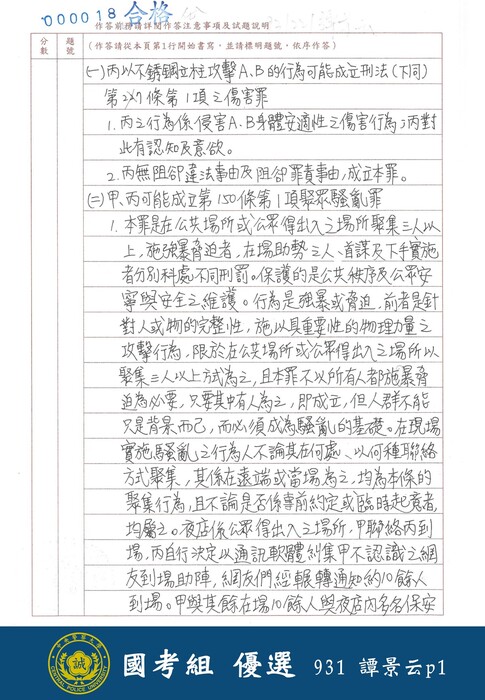 000018 合格
作答前務請詳閱作答注意事項及試題說明
分數
題號
(作答請從本頁第1行開始書寫,並請標明題號,依序作答)
(一)丙以不銹鋼立柱攻擊A、B的行為可能成立刑法(下同)
第277條第1項之傷害罪
1.丙之行為係侵害A、B身體安適性之傷害行為;丙對
此有認知及意欲。
2.丙無阻卻違法事由及阻卻罪責事由,成立本罪。
(二)甲、丙可能成立第150條第1項聚眾騷亂罪
1.本罪是在公共場所或公眾得出入之場所聚集三人以
上,施強暴脅迫者,在場助勢之人、首謀及下手實施
者分別科處不同刑罰。保護的是公共秩序及公眾安
寧與安全之維護。行為是強暴或脅迫,前者是針
對人或物的完整性,施以具重要性的物理力量之
攻擊行為,限於在公共場所或公眾得出入之場所以
聚集三人以上方式為之,且本罪不以所有人都施暴脅
迫為必要,只要其中有人為之,即成立,但人群不能
只是背景而已,而必須成為騷亂的基礎。在現場
實施騷亂之行為人不論其在何處、以何種聯絡
方式聚集,其係在遠端或當場為之,均為本條的
聚集行為,且不論是否係事前約定或臨時起意者,
均屬之。夜店係公眾得出入之場所,甲聯絡丙到
場,丙自行決定以通訊軟體糾集甲不認識之網
友到場助陣,網友們經輾轉通知約10餘人
到場。甲與其餘在場10餘人與夜店內多名保安
中央警察大學
誠
CENTRAL POLICE UNIVERSITY
國考組 優選 931 譚景云p1